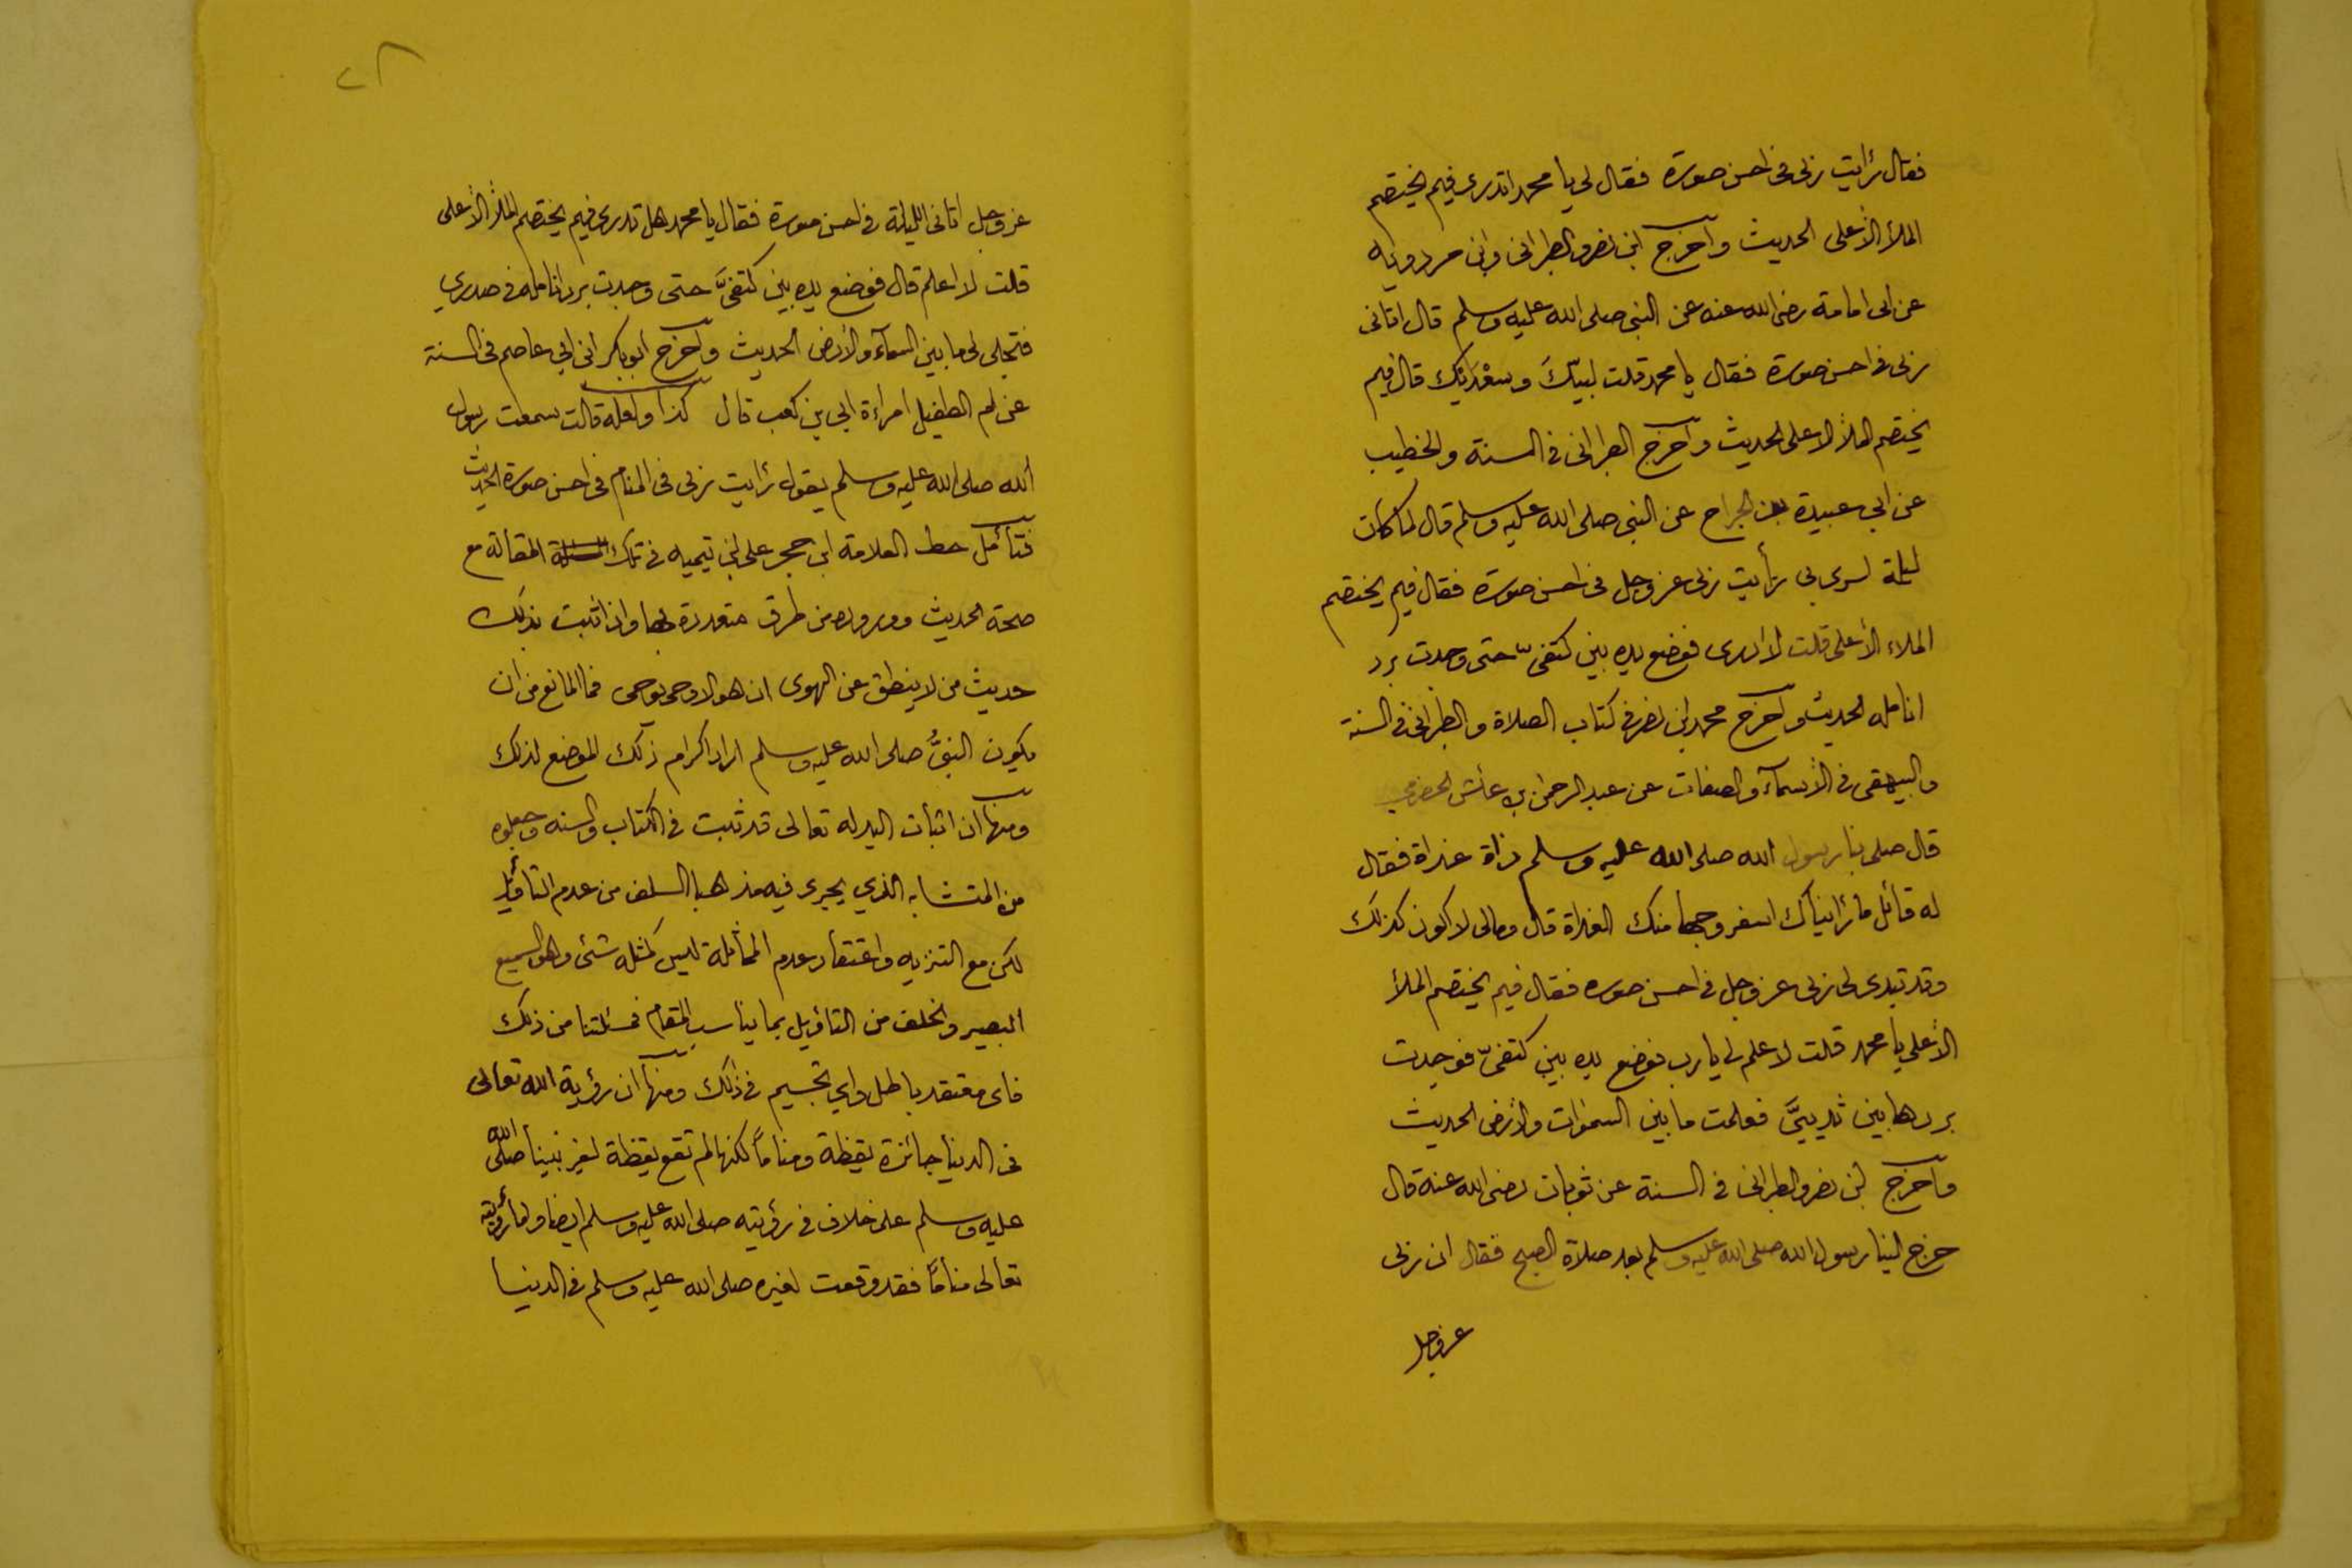 فقال رأيت ربى فى احسن صورة فقال لى يا محمد اتدرى فيم يختصم
الملأ الأعلى الحديث وآخرج ابن نصر والطبرانى وابن مردويه
عن ابى امامة رضى الله عنه عن النبى صلى الله عليه وسلم قال اتانى
ربى فى احسن صورة فقال يا محمد قلت لبيّكَ وسعْدَيْك قال فيم
يختصم الملأ الاعلى الحديث وآخرج الطبرانى فى السنة والخطيب
عن ابي عبيدة بن الجراح عن النبى صلى الله عليه وسلم قال لما كان
ليلة اسرى بى رأيت ربى عز وجل فى احسن صورة فقال فيم يختصم
الملاء الأعلى قلت لا ادرى فوضع يده بين كتفىّ حتى وجدت برد
انامله الحديث وآخرج محمد ابن نصر فى كتاب الصلاة والطبرانى فى السنة
والبيهقى فى الأسمآء والصفات عن عبد الرحمن بن عائش الحضرمي
قال صلى بنا رسول الله صلى الله عليه وسلم ذاة غداة فقال
له قائل ما رأيناك اسفر وجها منك الغداة قال ومالى لا اكون كذلك
وقد تبدى لى ربى عز وجل فى احسن صوره فقال فيم يختصم الملأ
الأعلى يا محمد قلت لا علم لى يا رب فوضع يده بين كتفىّ فوجدت
بردها بين ثدييَّ فعلمت ما بين السموات والأرض الحديث
وآخرج ابن نصر والطبرانى فى السنة عن ثوبان رضى الله عنه قال
خرج الينا رسول الله صلى الله عليه وسلم بعد صلاة الصبح فقال ان ربى
عز وجل
٢٨
عز وجل اتانى الليلة فى احسن صورة فقال يا محمد هل تدرى فيم يختصم الملأ الأعلى
قلت لا اعلم قال فوضع يده بين كتفىَّ حتى وجدت برد انامله فى صدري
فتجلى لى ما بين السمآء والأرض الحديث وآخرج ابو بكر ابن ابي عاصم فى السنة
عن ام الطفيل امراءة ابي بن كعب قال كذا ولعله قالت سمعت رسول
الله صلى الله عليه وسلم يقول رأيت ربى فى المنام فى احسن صورة الحديث
فتأمل حط العلامة ابن حجر على ابن تيميه فى تلك المقالة مع
صحة الحديث ووروده من طرق متعددة لها واذا ثبت بذلك
حديث من لا ينطق عن الهوى ان هو الا وحى يوحى فما المانع من ان
يكون النبىُّ صلى الله عليه وسلم اراد اكرام ذلك الموضع لذلك
ومنها ان اثبات اليد له تعالى قد ثبت فى الكتاب والسنه وجعلوه
من المتشابه الذي يجرى فيه مذهبا السلف من عدم التأويل
لكن مع التنزيه واعتقاد عدم المماثلة ليس كمثله شئى وهو السميع
البصير والخلف من التأويل بما يناسب المقام فمسئلتنا من ذلك
فاى معتقد باطل واي تجسيم فى ذلك ومنها ان رؤية الله تعالى
فى الدنيا جائزة يقظة ومناماً لكنها لم تقع يقظة لغير نبينا صلى الله
عليه وسلم على خلاف فى رؤيته صلى الله عليه وسلم ايضا واما رؤيته
تعالى مناماً فقد وقعت لغيره صلى الله عليه وسلم فى الدنيا